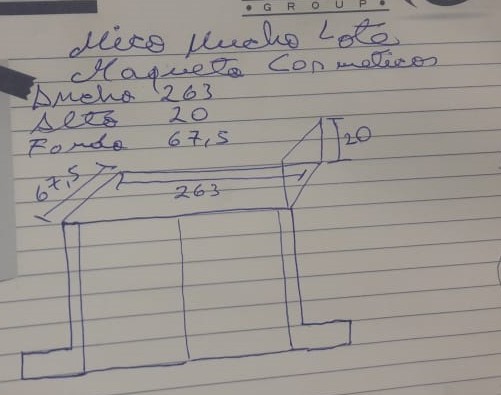 • G R O U P •
Mico Mucho Lote
Maqueta Cosmeticos
Ancho 263
Alto 20
Fondo 67,5
20
67,5
263